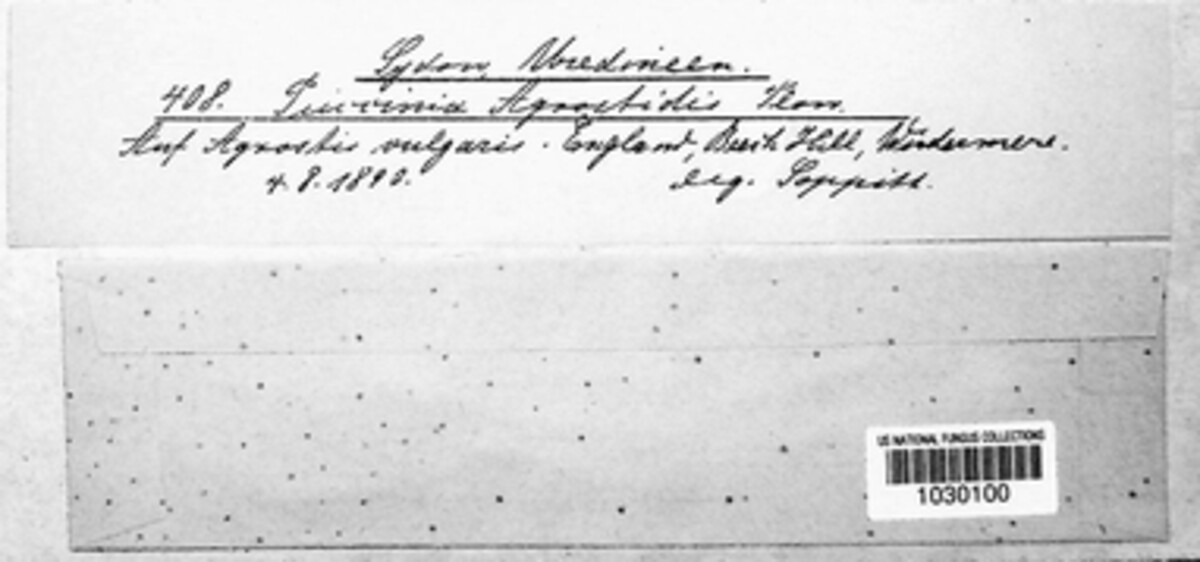 Sydow, Uredineen.
408. Puccinia Agrostidis Plow.
Auf Agrostis vulgaris. England, Beech Hill, Windermere.
4. 8. 1890. leg. Soppitt.
US NATIONAL FUNGUS COLLECTIONS
1030100